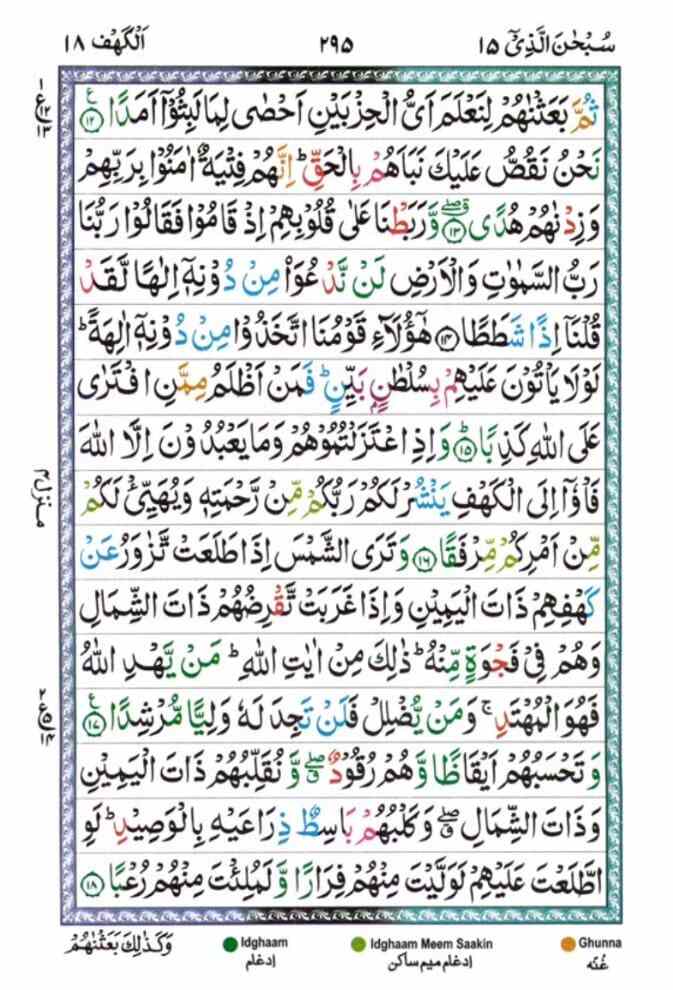 سُبْحٰنَ الَّذِیْٓ ۱۵
۲۹۵
اَلْكَهْف ۱۸
ثُمَّ بَعَثْنٰهُمْ لِنَعْلَمَ اَیُّ الْحِزْبَیْنِ اَحْصٰى لِمَا لَبِثُوْۤا اَمَدًا ۱۲ ع
نَحْنُ نَقُصُّ عَلَیْكَ نَبَاَهُمْ بِالْحَقِّ ؕ اِنَّهُمْ فِتْیَةٌ اٰمَنُوْا بِرَبِّهِمْ
وَ زِدْنٰهُمْ هُدًى ۱۳ وَّ رَبَطْنَا عَلٰى قُلُوْبِهِمْ اِذْ قَامُوْا فَقَالُوْا رَبُّنَا
رَبُّ السَّمٰوٰتِ وَ الْاَرْضِ لَنْ نَّدْعُوَاۡ مِنْ دُوْنِهٖۤ اِلٰهًا لَّقَدْ
قُلْنَاۤ اِذًا شَطَطًا ۱۴ هٰۤؤُلَآءِ قَوْمُنَا اتَّخَذُوْا مِنْ دُوْنِهٖۤ اٰلِهَةً ؕ
لَوْ لَا یَاْتُوْنَ عَلَیْهِمْ بِسُلْطٰنٍۭ بَیِّنٍ ؕ فَمَنْ اَظْلَمُ مِمَّنِ افْتَرٰى
عَلَى اللّٰهِ كَذِبًا ۱۵ؕ وَ اِذِ اعْتَزَلْتُمُوْهُمْ وَ مَا یَعْبُدُوْنَ اِلَّا اللّٰهَ
فَاْوٗۤا اِلَى الْكَهْفِ یَنْشُرْ لَكُمْ رَبُّكُمْ مِّنْ رَّحْمَتِهٖ وَ یُهَیِّئْ لَكُمْ
مِّنْ اَمْرِكُمْ مِّرْفَقًا ۱۶ وَ تَرَى الشَّمْسَ اِذَا طَلَعَتْ تَّزٰوَرُ عَنْ
كَهْفِهِمْ ذَاتَ الْیَمِیْنِ وَ اِذَا غَرَبَتْ تَّقْرِضُهُمْ ذَاتَ الشِّمَالِ
وَ هُمْ فِیْ فَجْوَةٍ مِّنْهُ ؕ ذٰلِكَ مِنْ اٰیٰتِ اللّٰهِ ؕ مَنْ یَّهْدِ اللّٰهُ
فَهُوَ الْمُهْتَدِ ۚ وَ مَنْ یُّضْلِلْ فَلَنْ تَجِدَ لَهٗ وَلِیًّا مُّرْشِدًا ۱۷ ع
وَ تَحْسَبُهُمْ اَیْقَاظًا وَّ هُمْ رُقُوْدٌ ۖۗ وَّ نُقَلِّبُهُمْ ذَاتَ الْیَمِیْنِ
وَ ذَاتَ الشِّمَالِ ۖۗ وَ كَلْبُهُمْ بَاسِطٌ ذِرَاعَیْهِ بِالْوَصِیْدِ ؕ لَوِ
اطَّلَعْتَ عَلَیْهِمْ لَوَلَّیْتَ مِنْهُمْ فِرَارًا وَّ لَمُلِئْتَ مِنْهُمْ رُعْبًا ۱۸
۱ ع ۱۲ ۱۳
منزل ۴
۲ ع ۵ ۱۴
وَ كَذٰلِكَ بَعَثْنٰهُمْ
Idghaam
ادغام
Idghaam Meem Saakin
ادغام میم ساکن
Ghunna
غنّه